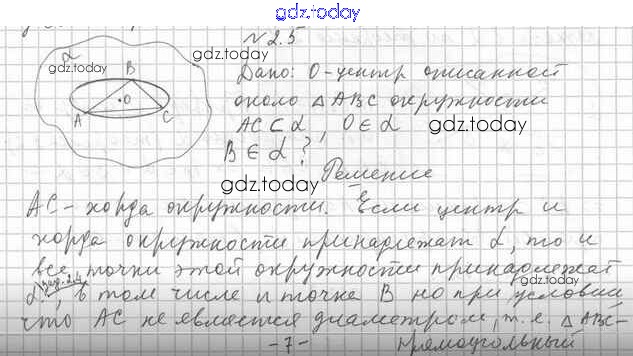 gdz.today
№2.5
α
gdz.today
gdz.today
B
O
A
C
Дано: O-центр описанной
около △ABC окружности
AC ⊂ α, O ∈ α
gdz.today
B ∈ α ?
Решение
gdz.today
AC - хорда окружности. Если центр и
хорда окружности принадлежат α, то и
все точки этой окружности принадлежат
gdz.today
α, в том числе и точка B но при условии
что AC не является диаметром, т.е. △ABC-
-7-
прямоугольный